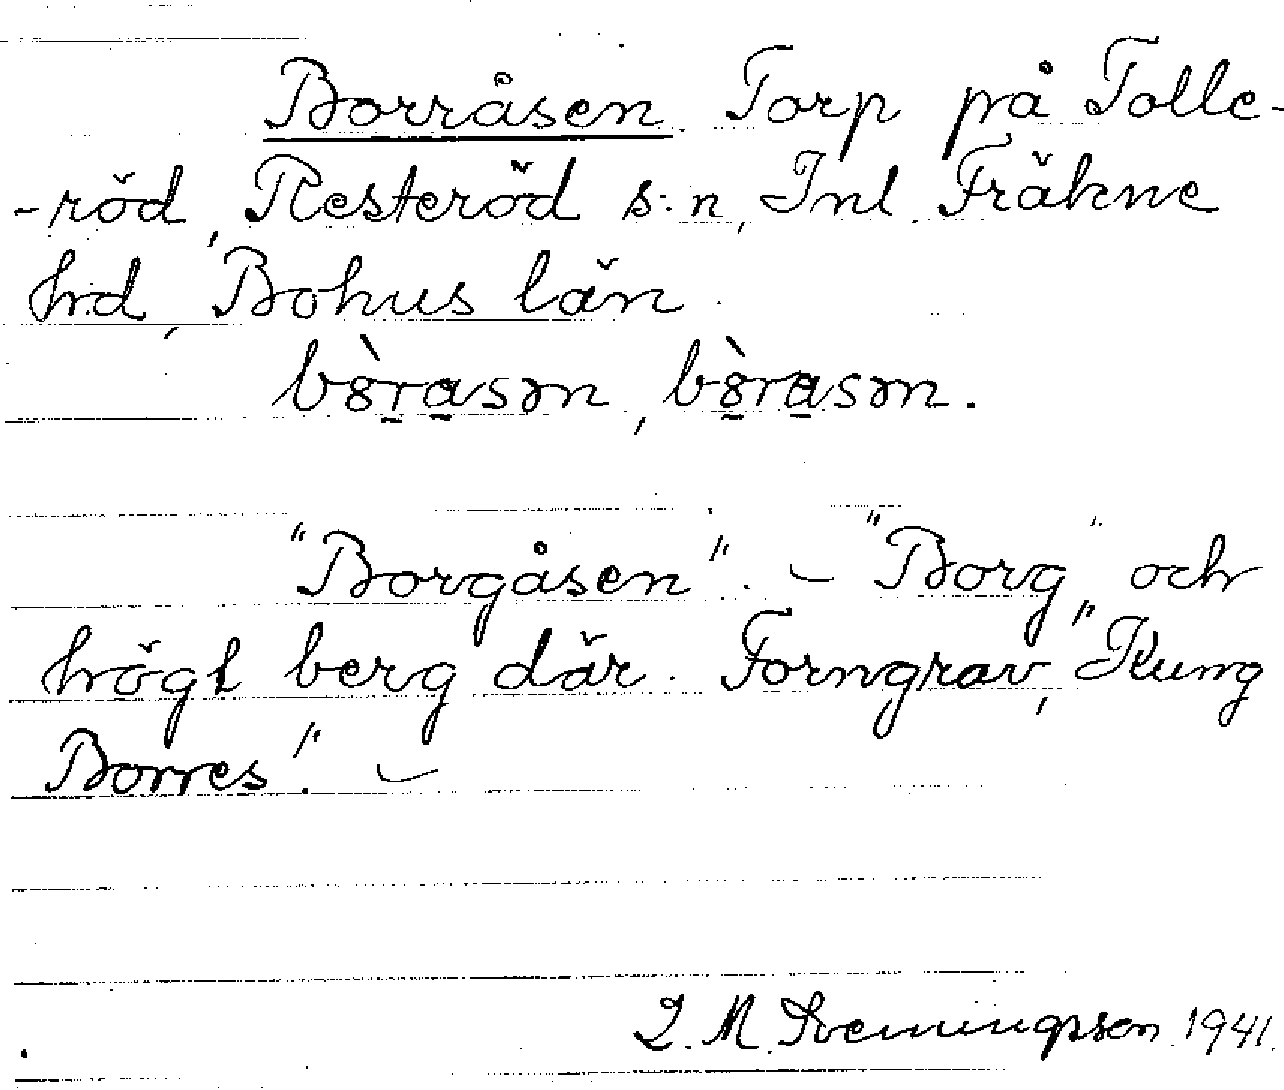 Borråsen Torp på Tolle-
-röd, Resteröd s:n, Inl. Fräkne
hd, Bohus län.
bòrasən, bòrasən.
"Borgåsen". – "Borg" och
högt berg där. Forngrav, "Kung
Borres". –
2. M. Sveningsson 1941.